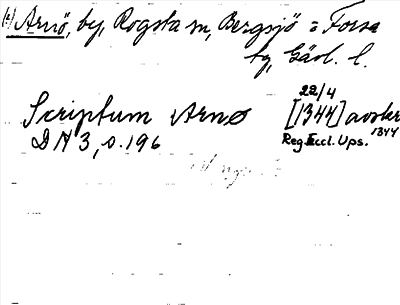 (2) Arnö, by, Rogsta sn, Bergsjö = Forsa
tg, Gävl. l.
Scriptum Arnø [1344] avskr
22/4
1344
DN 3, s. 196 Reg. Eccl. Ups.